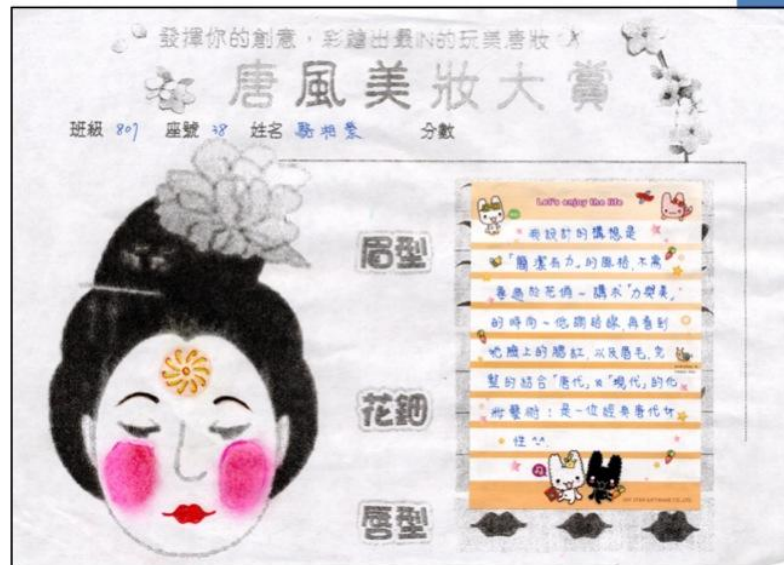 發揮你的創意,彩繪出最IN的玩美唐妝
唐風美妝大賞
班級 807 座號 38 姓名 駱 分數
眉型
花鈿
唇型
Let's enjoy the life
我設計的構想是
「簡潔有力」的風格,不需
要過於花俏~講求「力與美」
的時尚~低調
她臉上的腮紅,以及眉毛,完
整的結合「唐代」與「現代」的化
妝藝術:是一位經典唐代女
性^^